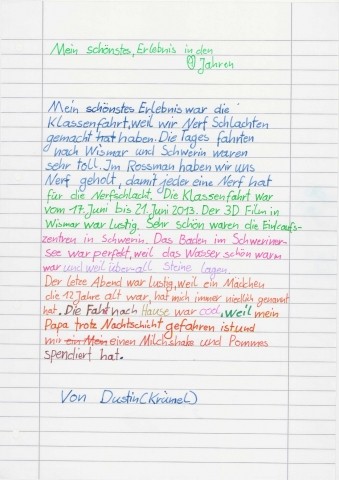 Mein schönstes, Erlebnis in den
Jahren
Mein schönstes Erlebnis war die
Klassenfahrt, weil wir Nerf Schlachten
gemacht hat haben. Die Tages fahrten
nach Wismar und Schwerin waren
sehr toll. Im Rossman haben wir uns
Nerf geholt, damit jeder eine Nerf hat
für die Nerfschlacht. Die Klassenfahrt war
vom 17. Juni bis 21. Juni 2013. Der 3D Film in
Wismar war lustig. Sehr schön waren die Einkaufs-
zentren in Schwerin. Das Baden im Schweriner-
see war perfekt, weil das Wasser schön warm
war und weil über-all Steine lagen.
Der letze Abend war lustig, weil ein Mädchen
die 12 Jahre alt war, hat mich immer niedlich genannt
hat. Die Faht nach Hause war cool, weil mein
Papa trotz Nachtschicht gefahren ist und
mir einen Milchshake und Pommes
spendiert hat.
Von Dustin (Krümel)